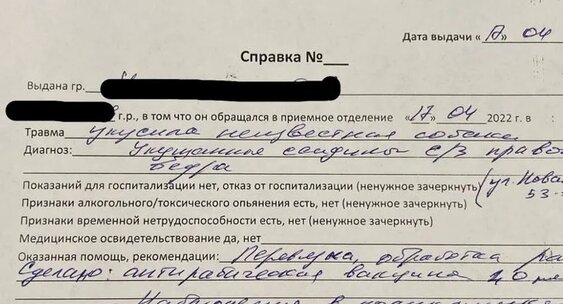 Дата выдачи «17» 04
Справка №
Выдана гр.
г.р., в том что он обращался в приемное отделение «17» 04 2022 г. в :
Травма укусила неизвестная собака
Диагноз: Укушенные ссадины с/з право
бедра
Показаний для госпитализации нет, отказ от госпитализации (ненужное зачеркнуть) (ул. Новая
Признаки алкогольного/токсического опьянения есть, нет (ненужное зачеркнуть) 53-
Признаки временной нетрудоспособности есть, нет (ненужное зачеркнуть)
Медицинское освидетельствование да, нет
Оказанная помощь, рекомендации: Перевязка, обработка ра
Сделано: антирабическая вакцина 1,0 мл
Наблюдение в